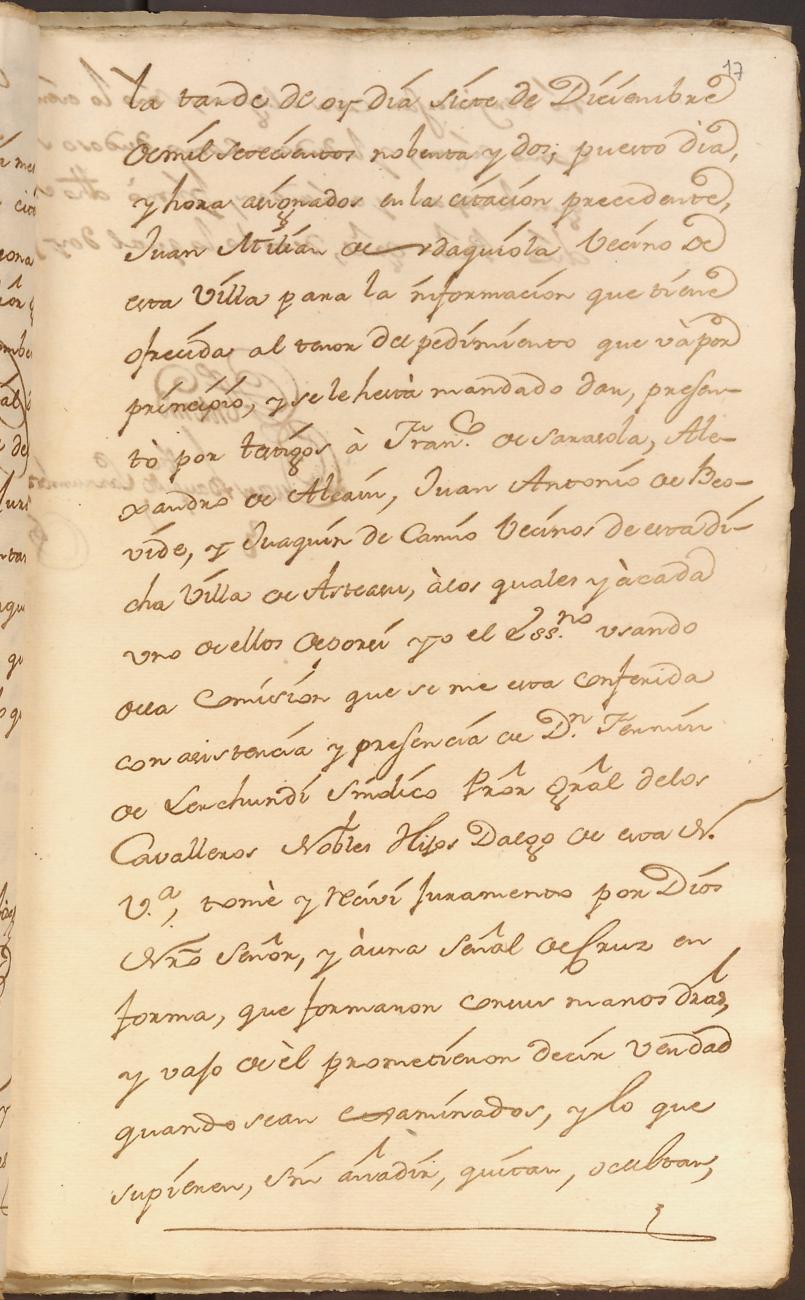 17
la tarde de oy dia siete de Diciembre
de mil setecientos nobenta y dos; puesto dia,
y hora asignados en la citacion precedente,
Juan Milian de Adaquiola Vecino de
esta Villa para la informacion que tiene
ofrecida al tenor del pedimiento que và por
principio, y se le hestà mandado dar, presen-
tò por testigos à Fran.co de Sarasola, Ale-
xandro de Alcain, Juan Antonio de Beo-
vide, y Juaquin de Camio Vecinos de esta di-
cha Villa de Asteasu, à los quales y à cada
uno de ellos de por si yo el Ess.no usando
de la Comision que se me esta conferida
con asistencia y presencia de D.n Fermin
de Lerchundi Sindico Pror Gral de los
Cavalleros Nobles Hijos Dalgo de esta N.
V.a, tomè y recivi Juramento por Dios
Nrõ Señor, y à una señal de Cruz en
forma, que formaron con sus manos dras,
y vajo de èl prometieron decir verdad
quando sean examinados, y lo que
supieren, sin añadir, quitar, ocultar,